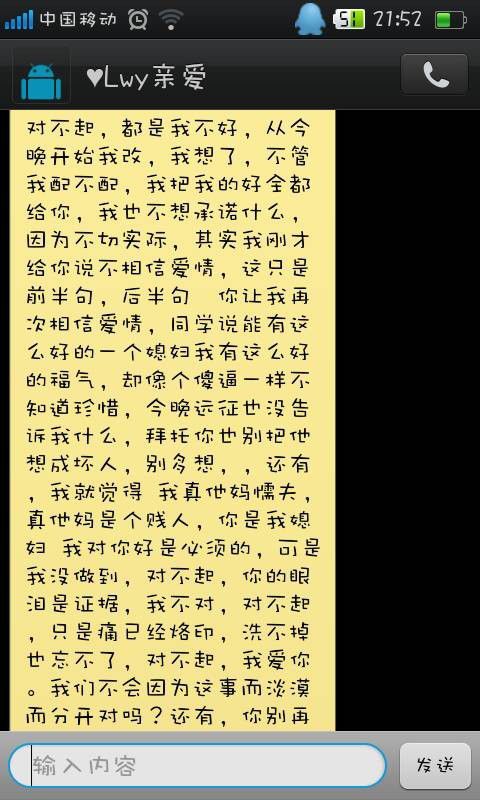 中国移动 51 21:52
♥Lwy亲爱
对不起，都是我不好，从今
晚开始我改，我想了，不管
我配不配，我把我的好全都
给你，我也不想承诺什么，
因为不切实际，其实我刚才
给你说不相信爱情，这只是
前半句，后半句 你让我再
次相信爱情，同学说能有这
么好的一个媳妇我有这么好
的福气，却像个傻逼一样不
知道珍惜，今晚远征也没告
诉我什么，拜托你也别把他
想成坏人，别多想，，还有
，我就觉得 我真他妈懦夫，
真他妈是个贱人，你是我媳
妇 我对你好是必须的，可是
我没做到，对不起，你的眼
泪是证据，我不对，对不起
，只是痛已经烙印，洗不掉
也忘不了，对不起，我爱你
。我们不会因为这事而淡漠
而分开对吗？还有，你别再
输入内容
发送